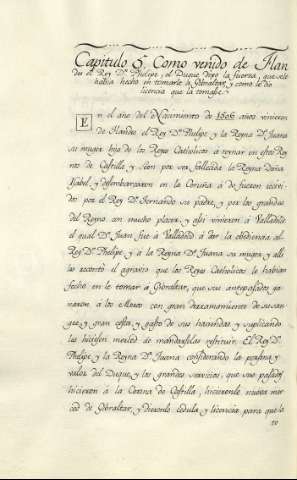 Capitulo 9. Como venido de Flan
des el Rey Dn. Phelipe, el Duque dixo la fuerza, que se le
habia hecho en tomarle a Gibraltar, y como le dio
licencia que la tomase.
En el año del Nacimiento de 1506 años vinieron
de Flandes el Rey Dn. Phelipe y la Reyna Da. Juana
su muger hija de los Reyes Catholicos à tomar en estos Rey
nos de Castilla, y Leon por ser fallecida la Reyna Doña
Ysabel, y desembarcaron en la Coruña à do fueron recivi
dos por el Rey Dn. Fernando su padre, y por los grandes
del Reyno con mucho placer, y alli vinieron à Valladolid
el qual Dn. Juan fue à Valladolid à dar la obediencia al
Rey Dn. Phelipe y à la Reyna Da. Juana su muger, y alli
les recontò el agravio que los Reyes Catholicos le habian
fecho en le tomar à Gibraltar, que sus antepasados ga
naron à los Moros con gran derramamiento de su san
gre, y gran costa, y gasto de sus haciendas, y suplicando
les hiciesen merced de mandarselas restituir. El Rey Dn.
Phelipe y la Reyna Da. Juana considerando la persona y
valor del Duque, y los grandes servicios, que sus pasados
hicieron à la Corona de Castilla, hicieronle nueva mer
ced de Gibraltar, y dieronle cedula y licencia para que la
to